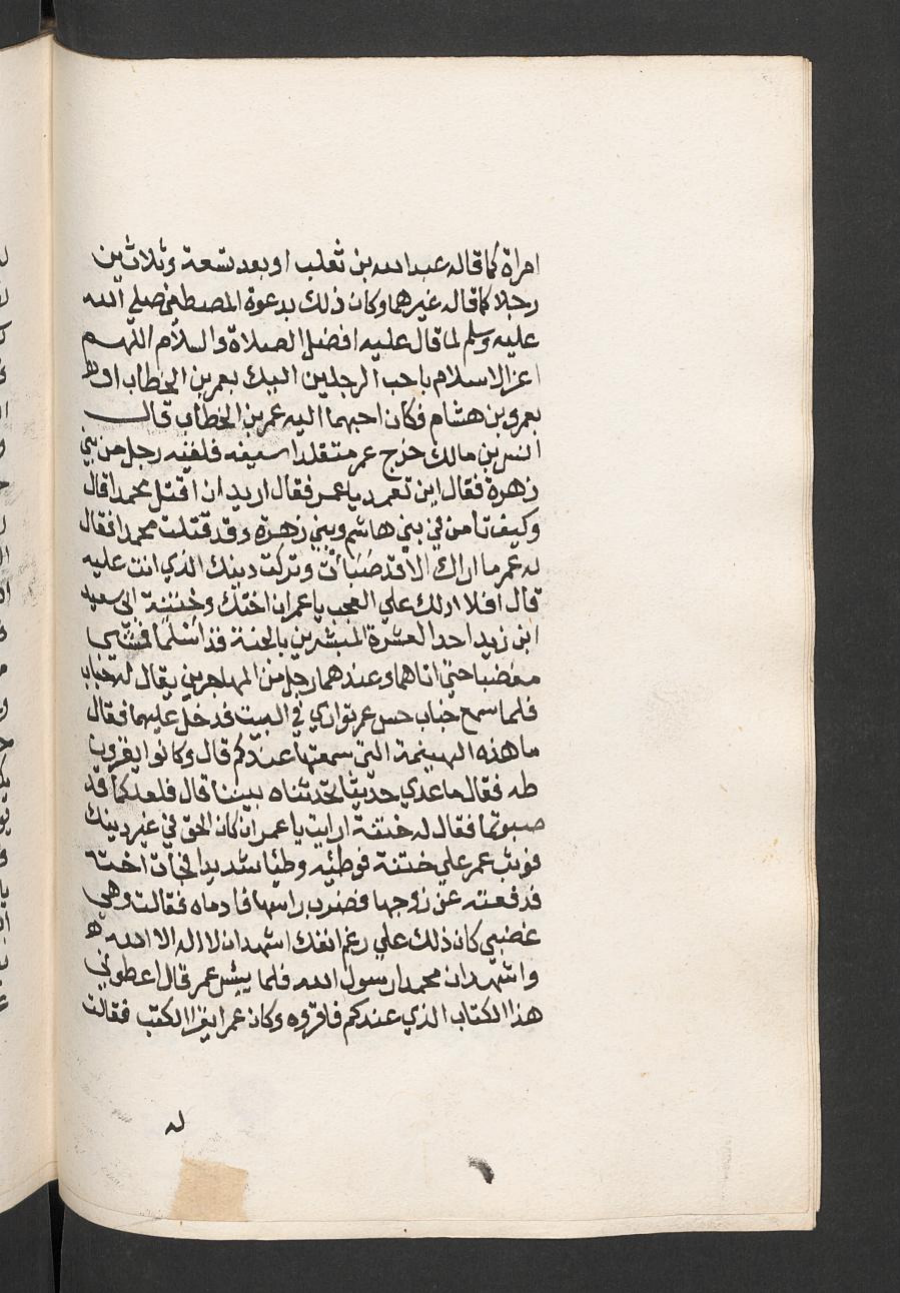 امراة كما قاله عبد الله بن ثعلب او بعد تسعة وثلاثين
رجلا كما قاله غيرهما وكان ذلك بدعوة المصطفي صلي الله
عليه وسلم لما قال عليه افضل الصلاة والسلام اللهم
اعز الاسلام باحب الرجلين اليك بعمر بن الخطاب او
بعمرو بن هشام فكان احبهما اليه عمر بن الخطاب قال
انس بن مالك خرج عمر متقلدا سيفه فلقيه رجل من بني
زهرة فقال اين تعمد يا عمر فقال اريد ان اقتل محمدا قال
وكيف تامن في بني هاشم وبني زهرة وقد قتلت محمدا فقال
له عمر ما اراك الا قد صبأت وتركت دينك الذي انت عليه
قال افلا ادلك علي العجب يا عمر ان اختك وختنة اي سعيد
ابن زيد احد العشرة المبشرين بالجنة قد اسلما فمشي
مغضبا حتي اتاهما وعندهما رجل من المهاجرين يقال له خباب
فلما سمع خباب حس عمر تواري في البيت فدخل عليهما فقال
ما هذه الهينمة التي سمعتها عندكم قال وكانوا يقرون
طه فقال ما عدي حديثا تحدثناه بيننا قال فلعلكما قد
صبوتما فقال له ختنة ارايت يا عمر ان كان الحق في غير دينك
فوثب عمر علي ختنة فوطئه وطئا شديدا فجأت اخته
فدفعته عن زوجها فضرب راسها فادماه فقالت وهي
غضبي كان ذلك علي رغم انفك اشهد ان لا اله الا الله
واشهد ان محمدا رسول الله فلما ييئس عمر قال اعطوني
هذا الكتاب الذي عندكم فاقروه وكان عمر ايقرا الكتب فقالت
له